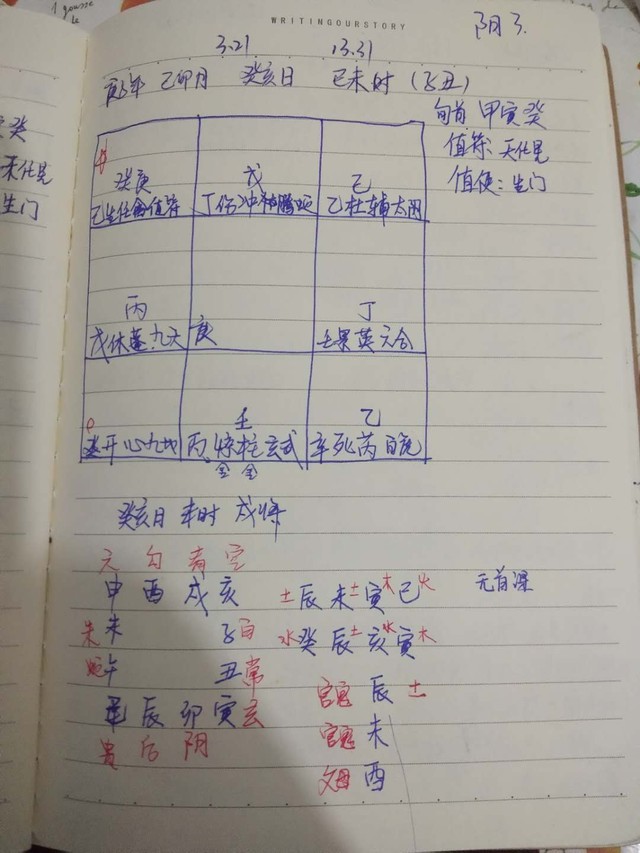 WRITINGOURSTORY
阳3.
3.21 13.31
年 乙卯月 癸亥日 己未时 (子丑)
旬首 甲寅癸
值符: 天任
值使: 生门
癸庚 戊 己
生任 值符 丁伤冲 螣蛇 乙杜辅太阴
丙 丁
戊休蓬九天 庚 壬景英六合
壬 乙
开心九地 丙 惊柱玄武 辛死芮白虎
金 金
癸亥日 未时 戌将
元 勾 青 空
申 酉 戌 亥 土辰 未土寅木巳火 无首课
朱未 子白 水癸 辰土亥水寅木
蛇午 丑常
辰 卯 寅玄 官鬼 辰 土
贵 后 阴 官鬼 未
父母 酉
癸
生门